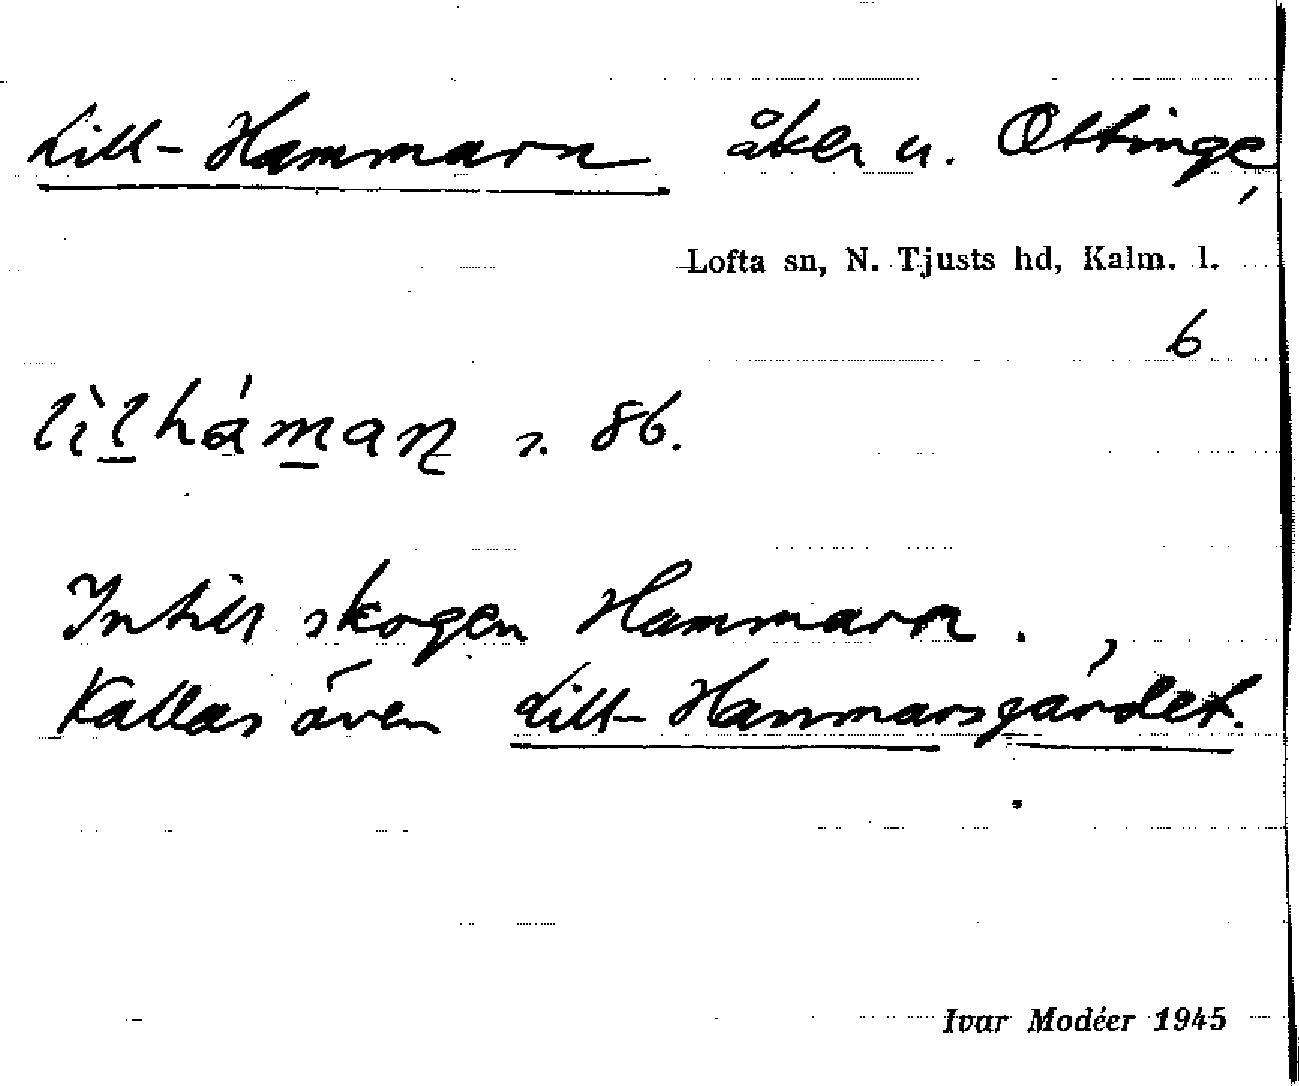 Lill-Hammarn åker u. Ottinge,
Lofta sn, N. Tjusts hd, Kalm. l.
6
s. 86.
Intill skogen Hammarn.
Kallas även Lill-Hammarsgärdet.
Ivar Modéer 1945